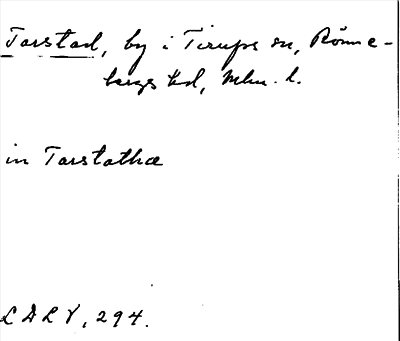 Tarstad, by i Tirups sn, Rönne-
bergs hd, Mlm. l.
in Tarstatha
LDLV, 294.